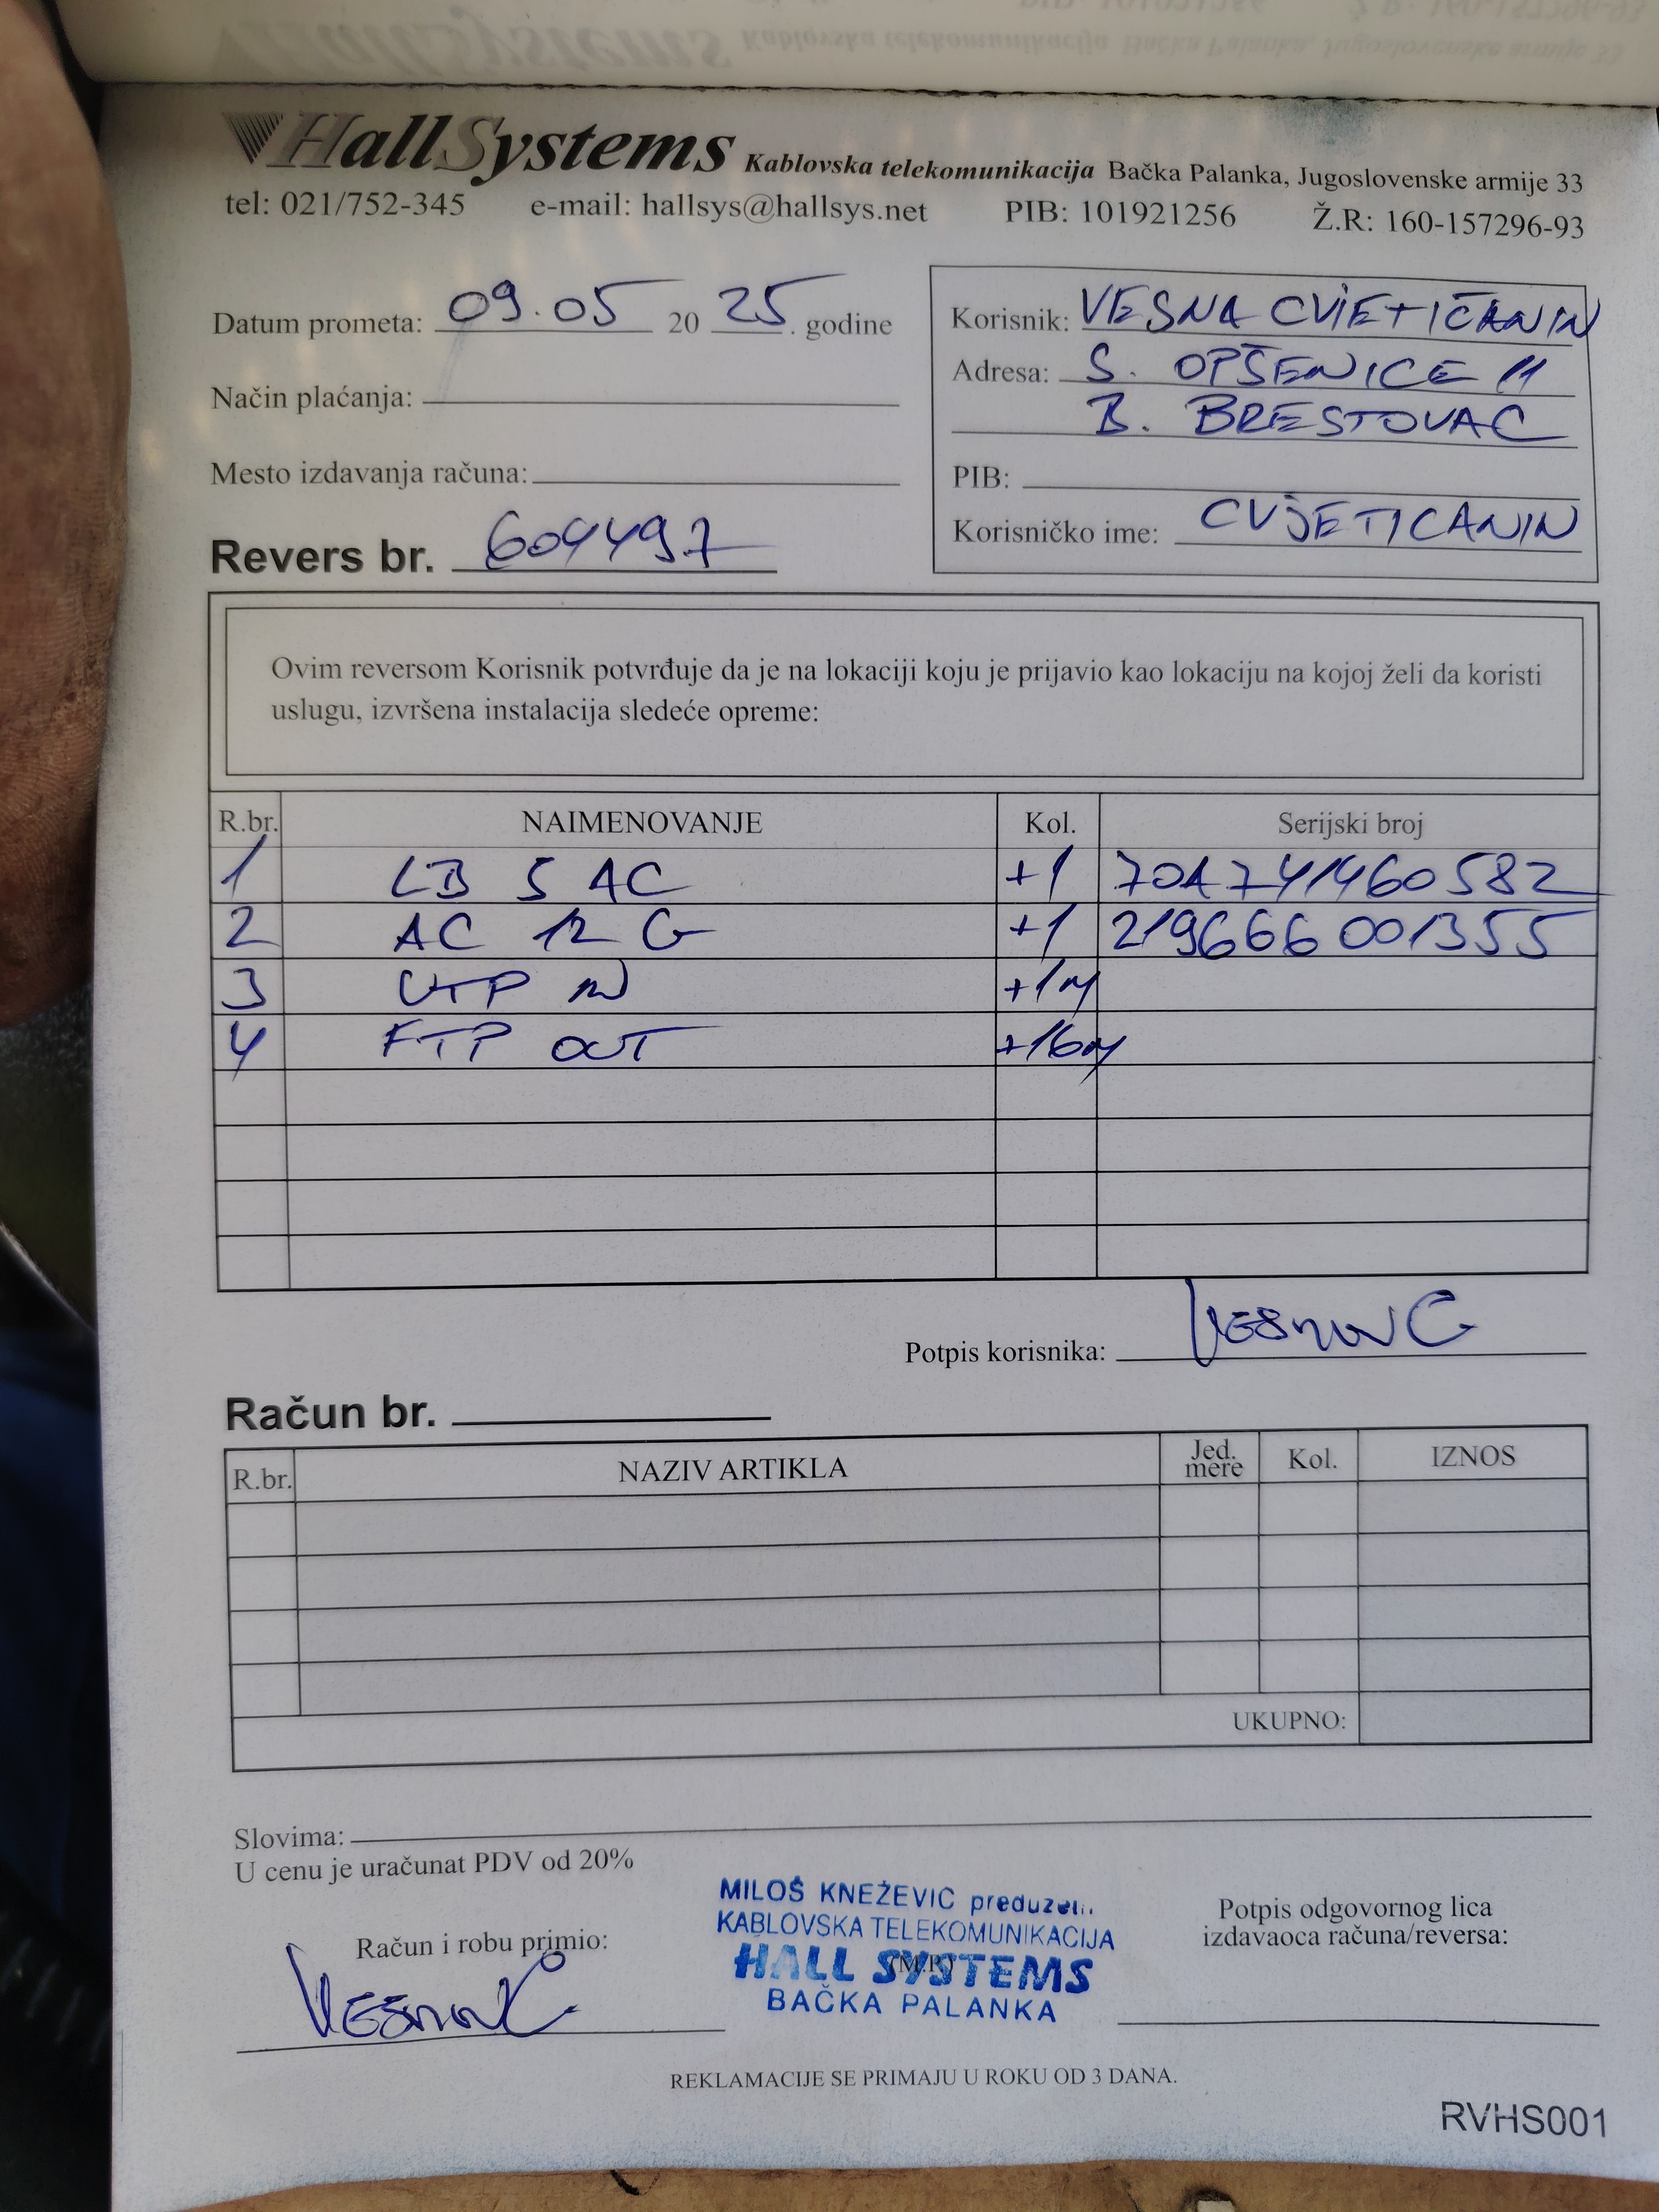 HallSystems Kablovska telekomunikacija Bačka Palanka, Jugoslovenske armije 33
tel: 021/752-345 e-mail: hallsys@hallsys.net PIB: 101921256 Ž.R: 160-157296-93
Datum prometa: 09.05 20 25. godine
Način plaćanja:
Mesto izdavanja računa:
Revers br. 604497
Korisnik: VESNA CVJETIČANIN
Adresa: S. OPŠENICE 11
B. BRESTOVAC
PIB:
Korisničko ime: CVJETICANIN
Ovim reversom Korisnik potvrđuje da je na lokaciji koju je prijavio kao lokaciju na kojoj želi da koristi
uslugu, izvršena instalacija sledeće opreme:
R.br. NAIMENOVANJE Kol. Serijski broj
1 LB 5 AC +1 70A741460582
2 AC 12 G +1 219666001355
3 UTP IN +1M
4 FTP OUT +16M
Potpis korisnika: VESNA C
Račun br.
R.br. NAZIV ARTIKLA Jed. mere Kol. IZNOS
UKUPNO:
Slovima:
U cenu je uračunat PDV od 20%
Račun i robu primio:
VESNA C
MILOŠ KNEŽEVIĆ preduzetn.
KABLOVSKA TELEKOMUNIKACIJA
HALL SYSTEMS
(M.P.)
BAČKA PALANKA
Potpis odgovornog lica
izdavaoca računa/reversa:
REKLAMACIJE SE PRIMAJU U ROKU OD 3 DANA.
RVHS001